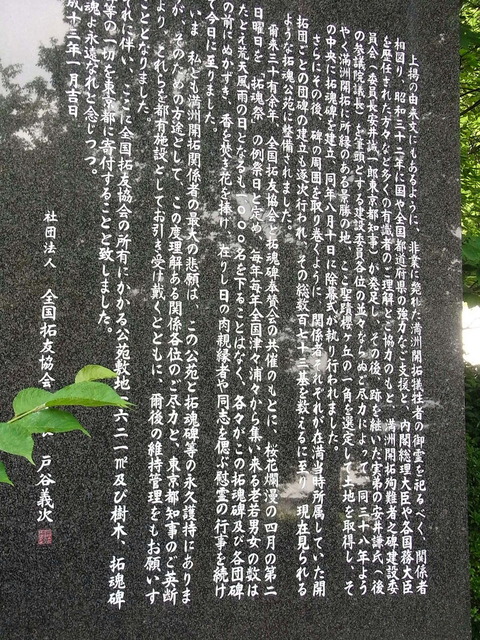 上掲の由来文にもあるように、非業に斃れた満洲開拓犠牲者の御霊を祀るべく、関係者
相図り、昭和三十二年に国や全国都道府県の強力なご支援と、内閣総理大臣や各国務大臣
を歴任された方々など多くの有識者のご理解とご協力のもと、満洲開拓殉難者之碑建設委
員会(委員長安井誠一郎東京都知事)が発足し、その後、跡を継いた実弟の安井謙氏(後
の参議院議長)を筆頭とする建設委員各位の並々ならぬご尽力によって、同三十八年よう
やく満洲開拓に所縁のある景勝の地、ここ聖蹟櫻ヶ丘の一角を選定して土地を取得し、そ
の中央に拓魂碑を建立、同年八月十日に除幕式が執り行われました。
さらにその後、碑の周囲を取り巻くように、関係者それぞれが在満当時所属していた開
拓団ごとの団碑の建立も逐次行われ、その総数百七十三基を数えるに至り、現在見られる
ような拓魂公苑に整備されました。
爾来三十有余年、全国拓友協会と拓魂碑奉賛会の共催のもとに、桜花爛漫の四月の第二
日曜日を「拓魂祭」の例祭日と定め、毎年毎年全国津々浦々から集い来る老若男女の数は
たとえ荒天風雨の日となるも一、〇〇〇名を下ることはなく、各々がこの拓魂碑及び各団碑
の前にぬかずき、香を焚き花を捧げ、在りし日の肉親縁者や同志を偲ぶ慰霊の行事を続け
て今日に至りました。
いま、私ども満洲開拓関係者の最大の悲願は、この公苑と拓魂碑等の永久護持にありま
が、そのための方途として、この度理解ある関係各位のご尽力と、東京都知事のご英断
より、これらを都有施設としてお引き受け戴くとともに、爾後の維持管理をもお願いす
こととなりました。
れに伴い、ここに全国拓友協会の所有にかかる公苑敷地 六二一㎡及び樹木、拓魂碑
等の一切を東京都に寄付することと致しました。
魂よ永遠なれと念じつつ。
成十三年一月吉日
社団法人 全国拓友協会 戸谷義次